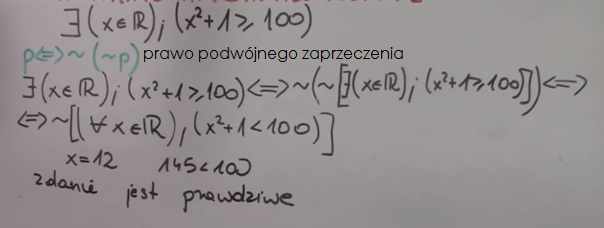 ∃(x∈ℝ); (x²+1⩾100)
p⇔~(~p) prawo podwójnego zaprzeczenia
∃(x∈ℝ); (x²+1⩾100)⇔~(~[∃(x∈ℝ); (x²+1⩾100)])⇔
⇔~[(∀x∈ℝ); (x²+1<100)]
x=12 145<100
zdanie jest prawdziwe